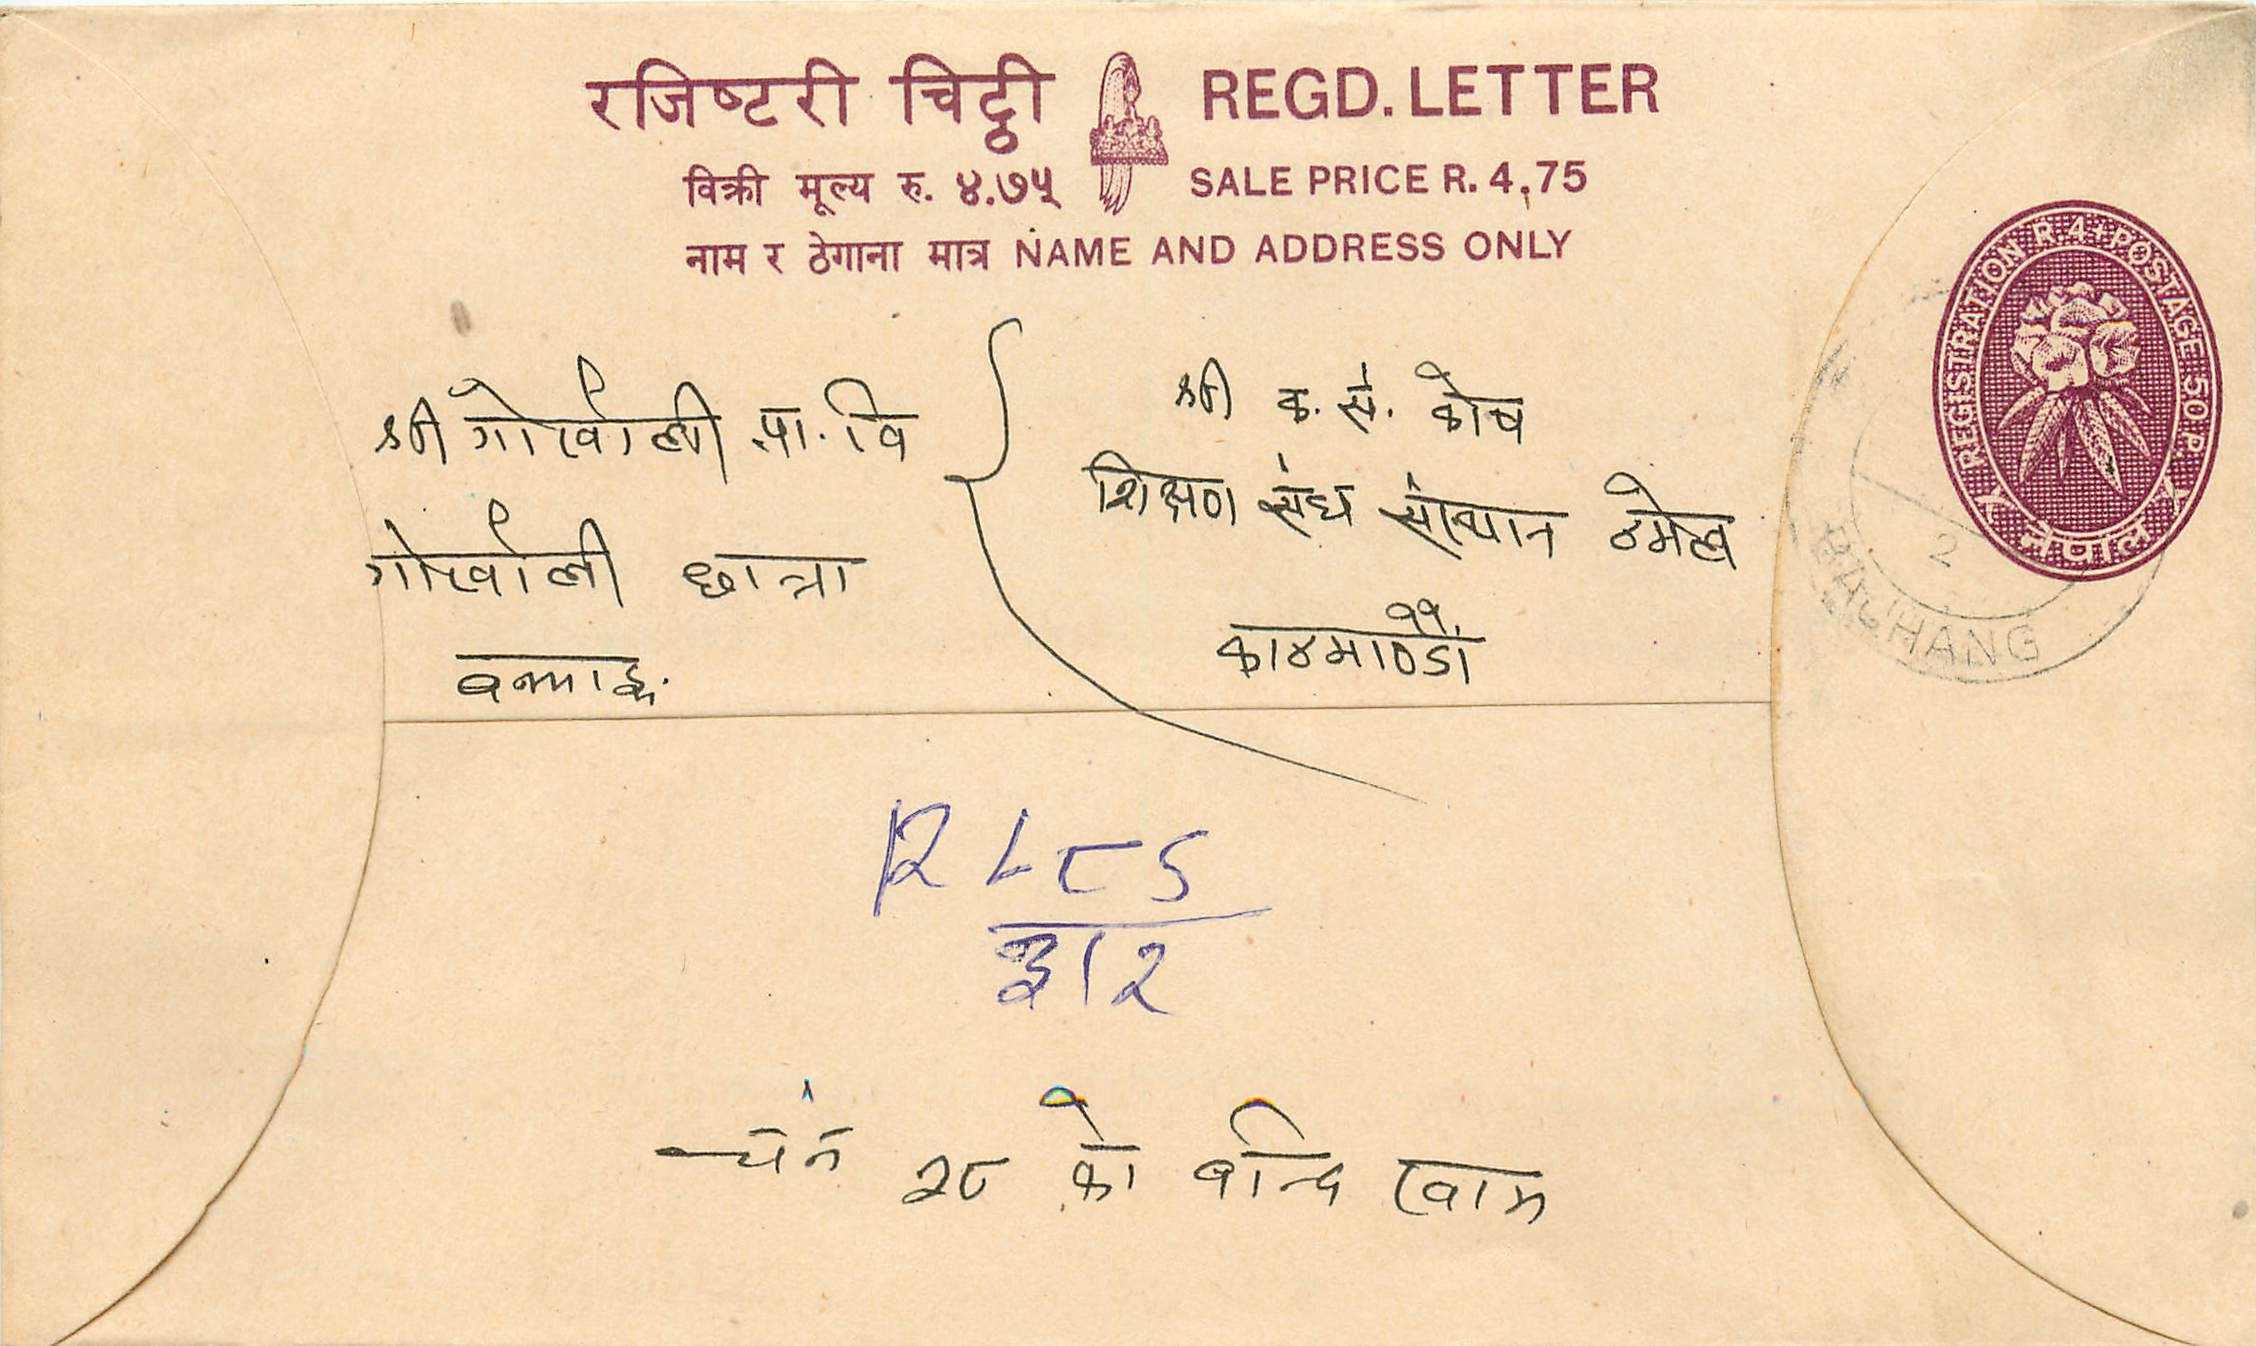 रजिष्टरी चिट्ठी REGD. LETTER
विक्री मूल्य रु. ४.७५ SALE PRICE R. 4,75
नाम र ठेगाना मात्र NAME AND ADDRESS ONLY
REGISTRATION R.4+POSTAGE 50 P.
नेपाल
श्री गोर्खाली प्रा. वि
गोर्खाली छात्रा
श्री क. से. कोष
शिक्षण संघ संस्थान ठमेल
काठमाण्डौं
BAJHANG
2
R ८९
३।२
२८ को बन्दि खाम